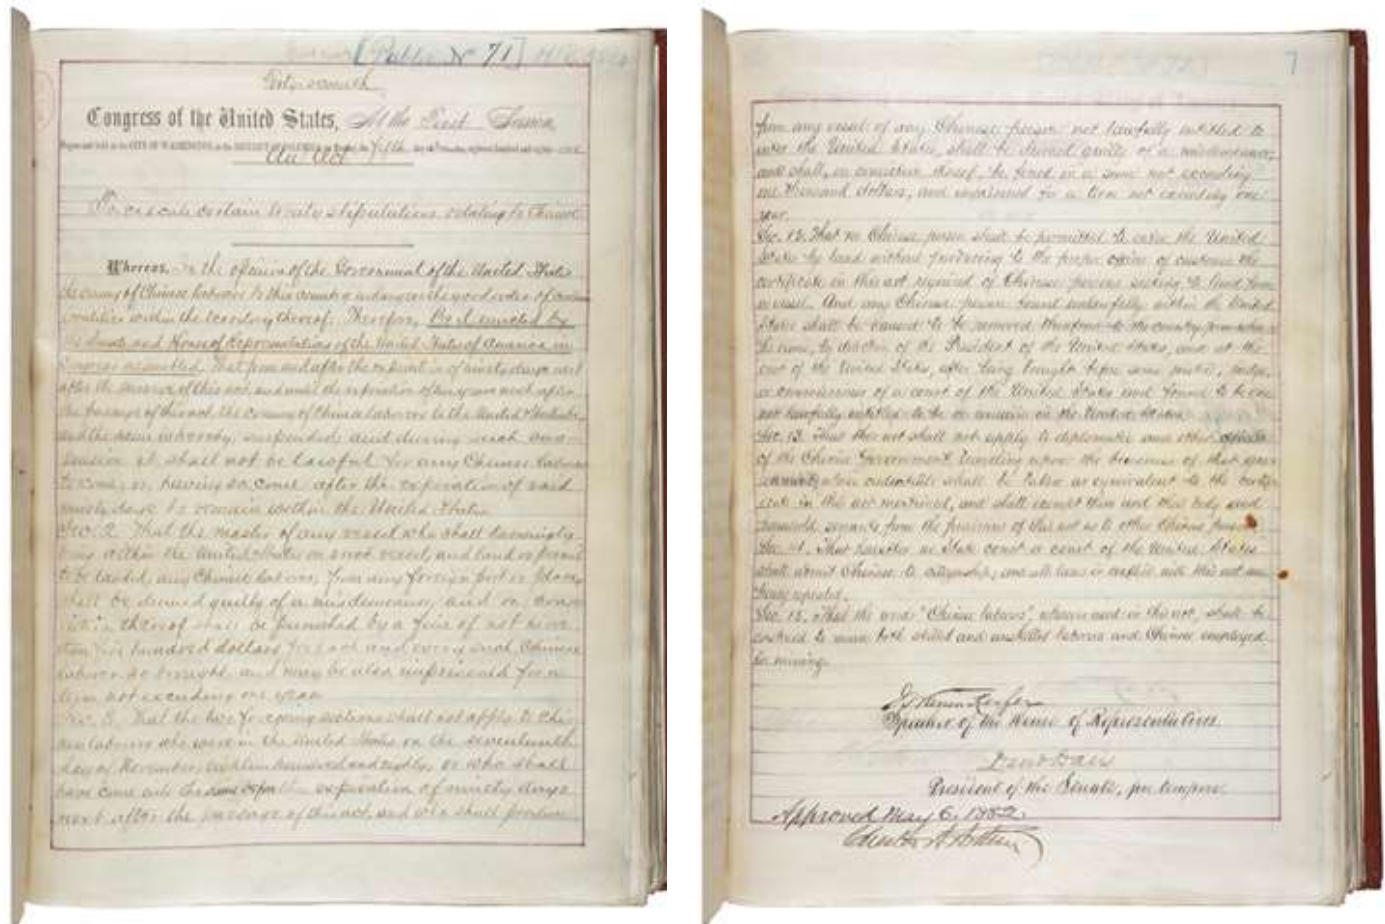 [Public No 71]
Forty-seventh
Congress of the United States, At the First Session,
Begun and held at the CITY OF WASHINGTON, in the DISTRICT OF COLUMBIA, on Monday, the fifth day of December, eighteen hundred and eighty-one
An Act
To execute certain treaty stipulations relating to Chinese
Whereas, In the opinion of the Government of the United States
the coming of Chinese laborers to this country endangers the good order of certain
localities within the territory thereof: Therefore, Be it enacted by
the Senate and House of Representatives of the United States of America in
Congress assembled, That from and after the expiration of ninety days next
after the passage of this act, and until the expiration of ten years next after
the passage of this act, the coming of Chinese laborers to the United States be,
and the same is hereby, suspended; and during such sus-
pension it shall not be lawful for any Chinese laborer
to come, or, having so come after the expiration of said
ninety days, to remain within the United States.
Sec. 2. That the master of any vessel who shall knowingly
bring within the United States on such vessel, and land or permit
to be landed, any Chinese laborer, from any foreign port or place,
shall be deemed guilty of a misdemeanor, and on convic-
tion thereof shall be punished by a fine of not more
than five hundred dollars for each and every such Chinese
laborer so brought, and may be also imprisoned for a
term not exceeding one year.
Sec. 3. That the two foregoing sections shall not apply to Chi-
nese laborers who were in the United States on the seventeenth
day of November, eighteen hundred and eighty, or who shall
have come into the same before the expiration of ninety days
next after the passage of this act, and who shall produce
7
from any vessel of any Chinese person not lawfully entitled to
enter the United States, shall be deemed guilty of a misdemeanor,
and shall, on conviction thereof, be fined in a sum not exceeding
one thousand dollars, and imprisoned for a term not exceeding one
year.
Sec. 12. That no Chinese person shall be permitted to enter the United
States by land without producing to the proper officer of customs the
certificate in this act required of Chinese persons seeking to land from
a vessel. And any Chinese person found unlawfully within the United
States shall be caused to be removed therefrom to the country from whence
he came, by direction of the President of the United States, and at the
cost of the United States, after being brought before some justice, judge,
or commissioner of a court of the United States and found to be one
not lawfully entitled to be or remain in the United States.
Sec. 13. That this act shall not apply to diplomatic and other officers
of the Chinese Government traveling upon the business of that gov-
ernment, whose credentials shall be taken as equivalent to the certifi-
cate in this act mentioned, and shall exempt them and their body and
household servants from the provisions of this act as to other Chinese persons.
Sec. 14. That hereafter no State court or court of the United States
shall admit Chinese to citizenship; and all laws in conflict with this act are
hereby repealed.
Sec. 15. That the words "Chinese laborers", wherever used in this act, shall be
construed to mean both skilled and unskilled laborers and Chinese employed
in mining.
J. Warren Keifer
Speaker of the House of Representatives.
David Davis
President of the Senate, pro tempore.
Approved May 6, 1882.
Chester A Arthur